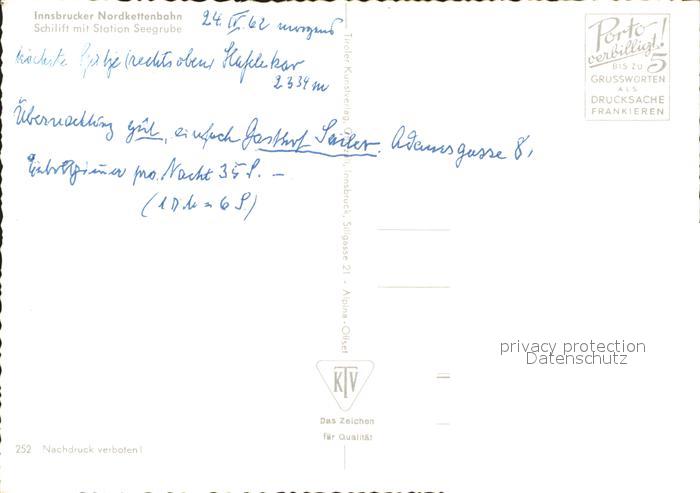 Innsbrucker Nordkettenbahn
Schilift mit Station Seegrube
24. IV. 62 morgens
höchste Spitze (rechts oben) Hafelekar
2334 m
Übernachtung gut, einfach Gasthof Sailer. Adamgasse 8,
pro Nacht 35 S. —
(1 DM = 6 S)
Porto
verbilligt!
BIS ZU 5
GRUSSWORTEN
ALS
DRUCKSACHE
FRANKIEREN
Tiroler Kunstverlag, Innsbruck, Sillgasse 21 - Alpina-Offset
privacy protection
Datenschutz
KTV
Das Zeichen
für Qualität
252 Nachdruck verboten!